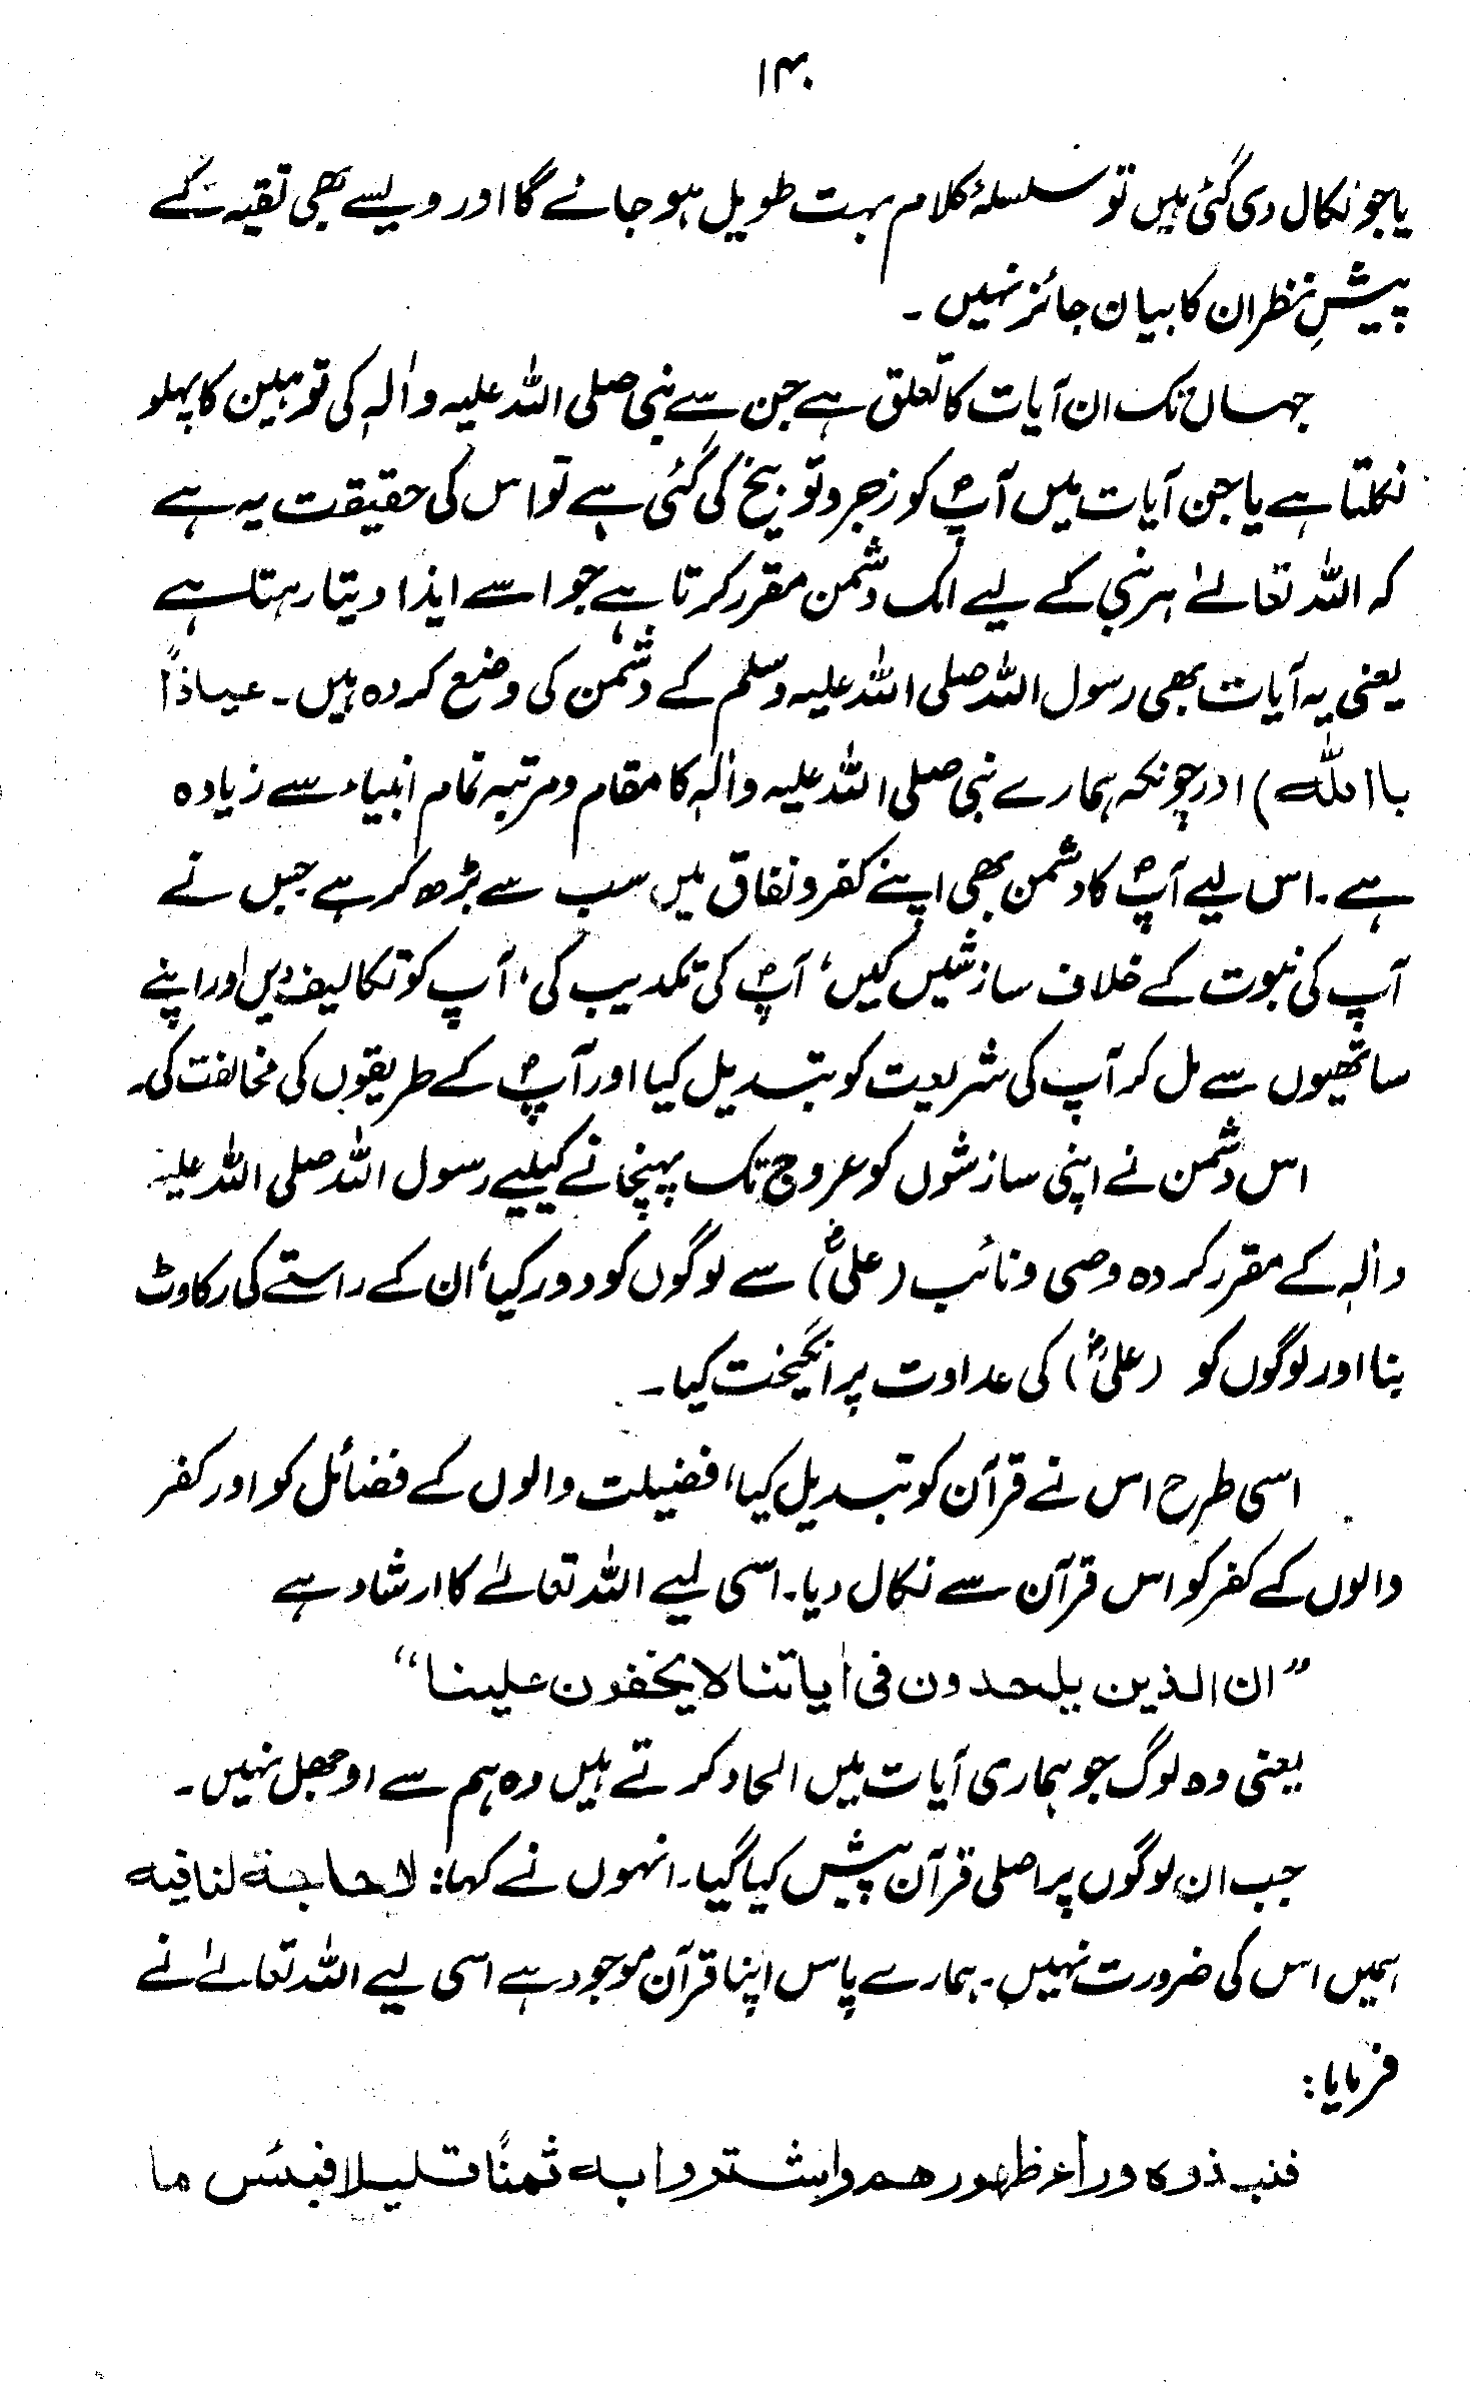 ۱۴۰
یا جو نکال دی گئی ہیں تو سلسلۂ کلام بہت طویل ہو جائے گا اور ویسے بھی تقیہ کے
پیشِ نظر ان کا بیان جائز نہیں ۔
جہاں تک ان آیات کا تعلق ہے جن سے نبی صلی اللہ علیہ واٰلہٖ کی توہین کا پہلو
نکلتا ہے یا جن آیات میں آپؐ کو زجر و توبیخ کی گئی ہے تو اس کی حقیقت یہ ہے
کہ اللہ تعالےٰ ہر نبی کے لیے اک دشمن مقرر کرتا ہے جو اسے ایذا دیتا رہتا ہے
یعنی یہ آیات بھی رسول اللہ صلی اللہ علیہ وسلم کے دشمن کی وضع کردہ ہیں ۔ عیاذاً
بااللہ) اور چونکہ ہمارے نبی صلی اللہ علیہ واٰلہٖ کا مقام و مرتبہ تمام انبیاء سے زیادہ
ہے ۔ اس لیے آپؐ کا دشمن بھی اپنے کفر و نفاق میں سب سے بڑھ کر ہے جس نے
آپ کی نبوت کے خلاف سازشیں کیں، آپؐ کی تکذیب کی، آپ کو تکالیف دیں اور اپنے
ساتھیوں سے مل کر آپ کی شریعت کو تبدیل کیا اور آپؐ کے طریقوں کی مخالفت کی۔
اس دشمن نے اپنی سازشوں کو عروج تک پہنچانے کیلیے رسول اللہ صلی اللہ علیہ
واٰلہٖ کے مقرر کردہ وصی و نائب (علیؓ) سے لوگوں کو دور کیا، ان کے راستے کی رکاوٹ
بنا اور لوگوں کو (علیؓ) کی عداوت پر انگیخت کیا ۔
اسی طرح اس نے قرآن کو تبدیل کیا، فضیلت والوں کے فضائل کو اور کفر
والوں کے کفر کو اس قرآن سے نکال دیا ۔ اسی لیے اللہ تعالےٰ کا ارشاد ہے
”ان الذین یلحدون فی اٰیاتنا لا یخفون علینا“
یعنی وہ لوگ جو ہماری آیات میں الحاد کرتے ہیں وہ ہم سے اوجھل نہیں ۔
جب ان لوگوں پر اصلی قرآن پیش کیا گیا ۔ انہوں نے کہا: لا حاجة لنا فیه
ہمیں اس کی ضرورت نہیں ۔ ہمارے پاس اپنا قرآن موجود ہے اسی لیے اللہ تعالےٰ نے
فرمایا :
فنبذوه وراء ظهورهم واشتروا به ثمنًا قلیلا فبئس ما